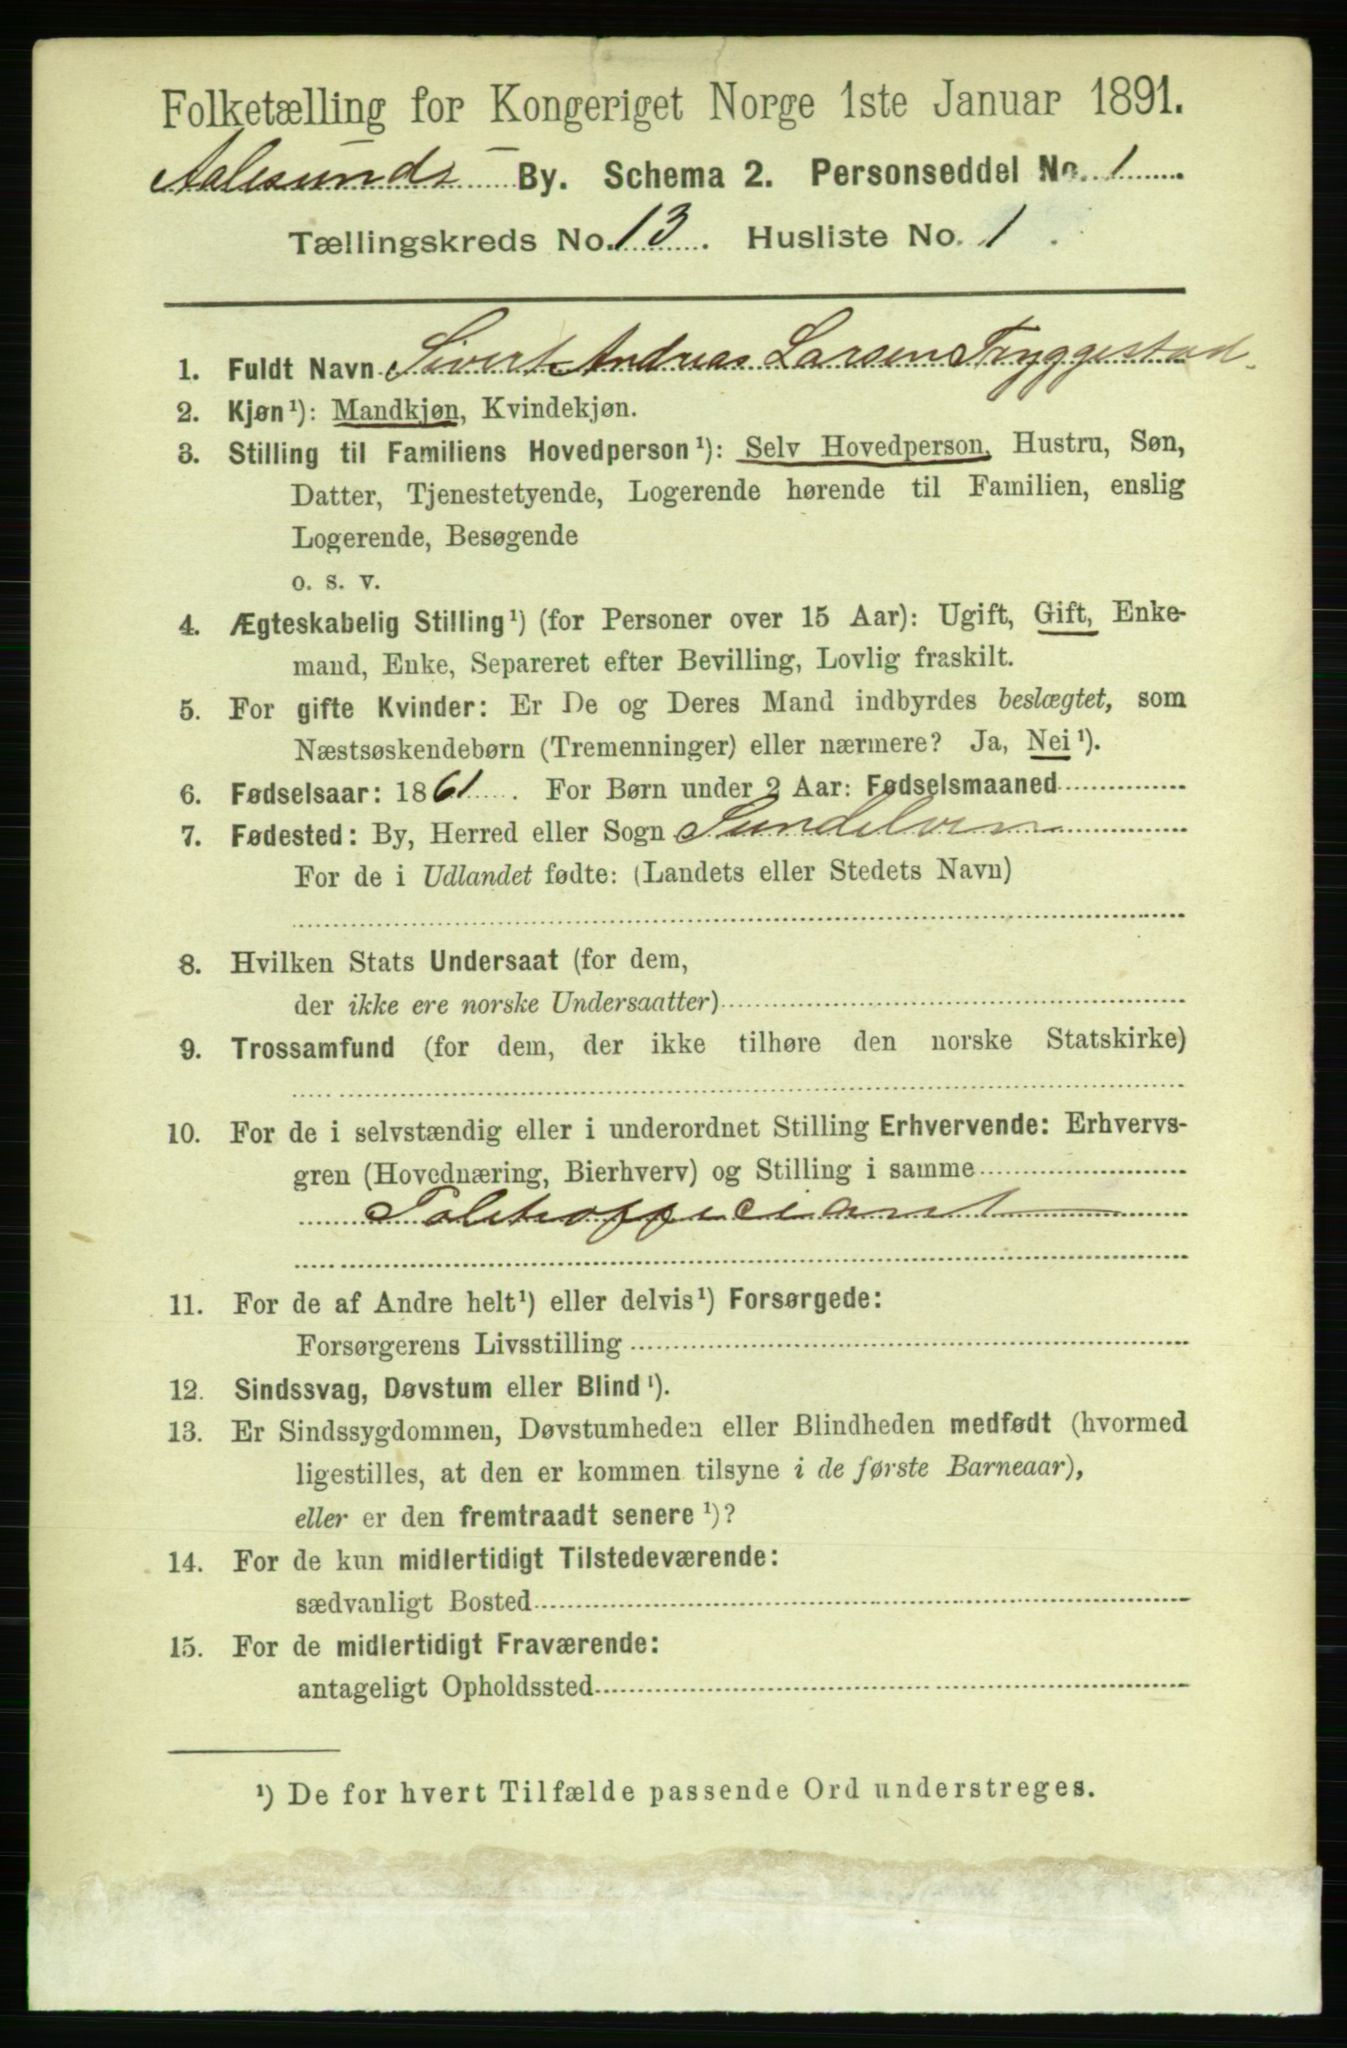 Folketælling for Kongeriget Norge 1ste Januar 1891.
Aalesunds By. Schema 2. Personseddel No. 1
Tællingskreds No. 13. Husliste No. 1.
1. Fuldt Navn Sivert Andreas Larsen Tryggestad.
2. Kjøn¹): Mandkjøn, Kvindekjøn.
3. Stilling til Familiens Hovedperson¹): Selv Hovedperson, Hustru, Søn,
Datter, Tjenestetyende, Logerende hørende til Familien, enslig
Logerende, Besøgende
o. s. v.
4. Ægteskabelig Stilling¹) (for Personer over 15 Aar): Ugift, Gift, Enke-
mand, Enke, Separeret efter Bevilling, Lovlig fraskilt.
5. For gifte Kvinder: Er De og Deres Mand indbyrdes beslægtet, som
Næstsøskendebørn (Tremenninger) eller nærmere? Ja, Nei¹).
6. Fødselsaar: 1861. For Børn under 2 Aar: Fødselsmaaned
7. Fødested: By, Herred eller Sogn Sundelven
For de i Udlandet fødte: (Landets eller Stedets Navn)
8. Hvilken Stats Undersaat (for dem,
der ikke ere norske Undersaatter)
9. Trossamfund (for dem, der ikke tilhøre den norske Statskirke)
10. For de i selvstændig eller i underordnet Stilling Erhvervende: Erhvervs-
gren (Hovednæring, Bierhverv) og Stilling i samme
Politiofficiant
11. For de af Andre helt¹) eller delvis¹) Forsørgede:
Forsørgerens Livsstilling
12. Sindssvag, Døvstum eller Blind¹).
13. Er Sindssygdommen, Døvstumheden eller Blindheden medfødt (hvormed
ligestilles, at den er kommen tilsyne i de første Barneaar),
eller er den fremtraadt senere¹)?
14. For de kun midlertidigt Tilstedeværende:
sædvanligt Bosted
15. For de midlertidigt Fraværende:
antageligt Opholdssted
¹) De for hvert Tilfælde passende Ord understreges.